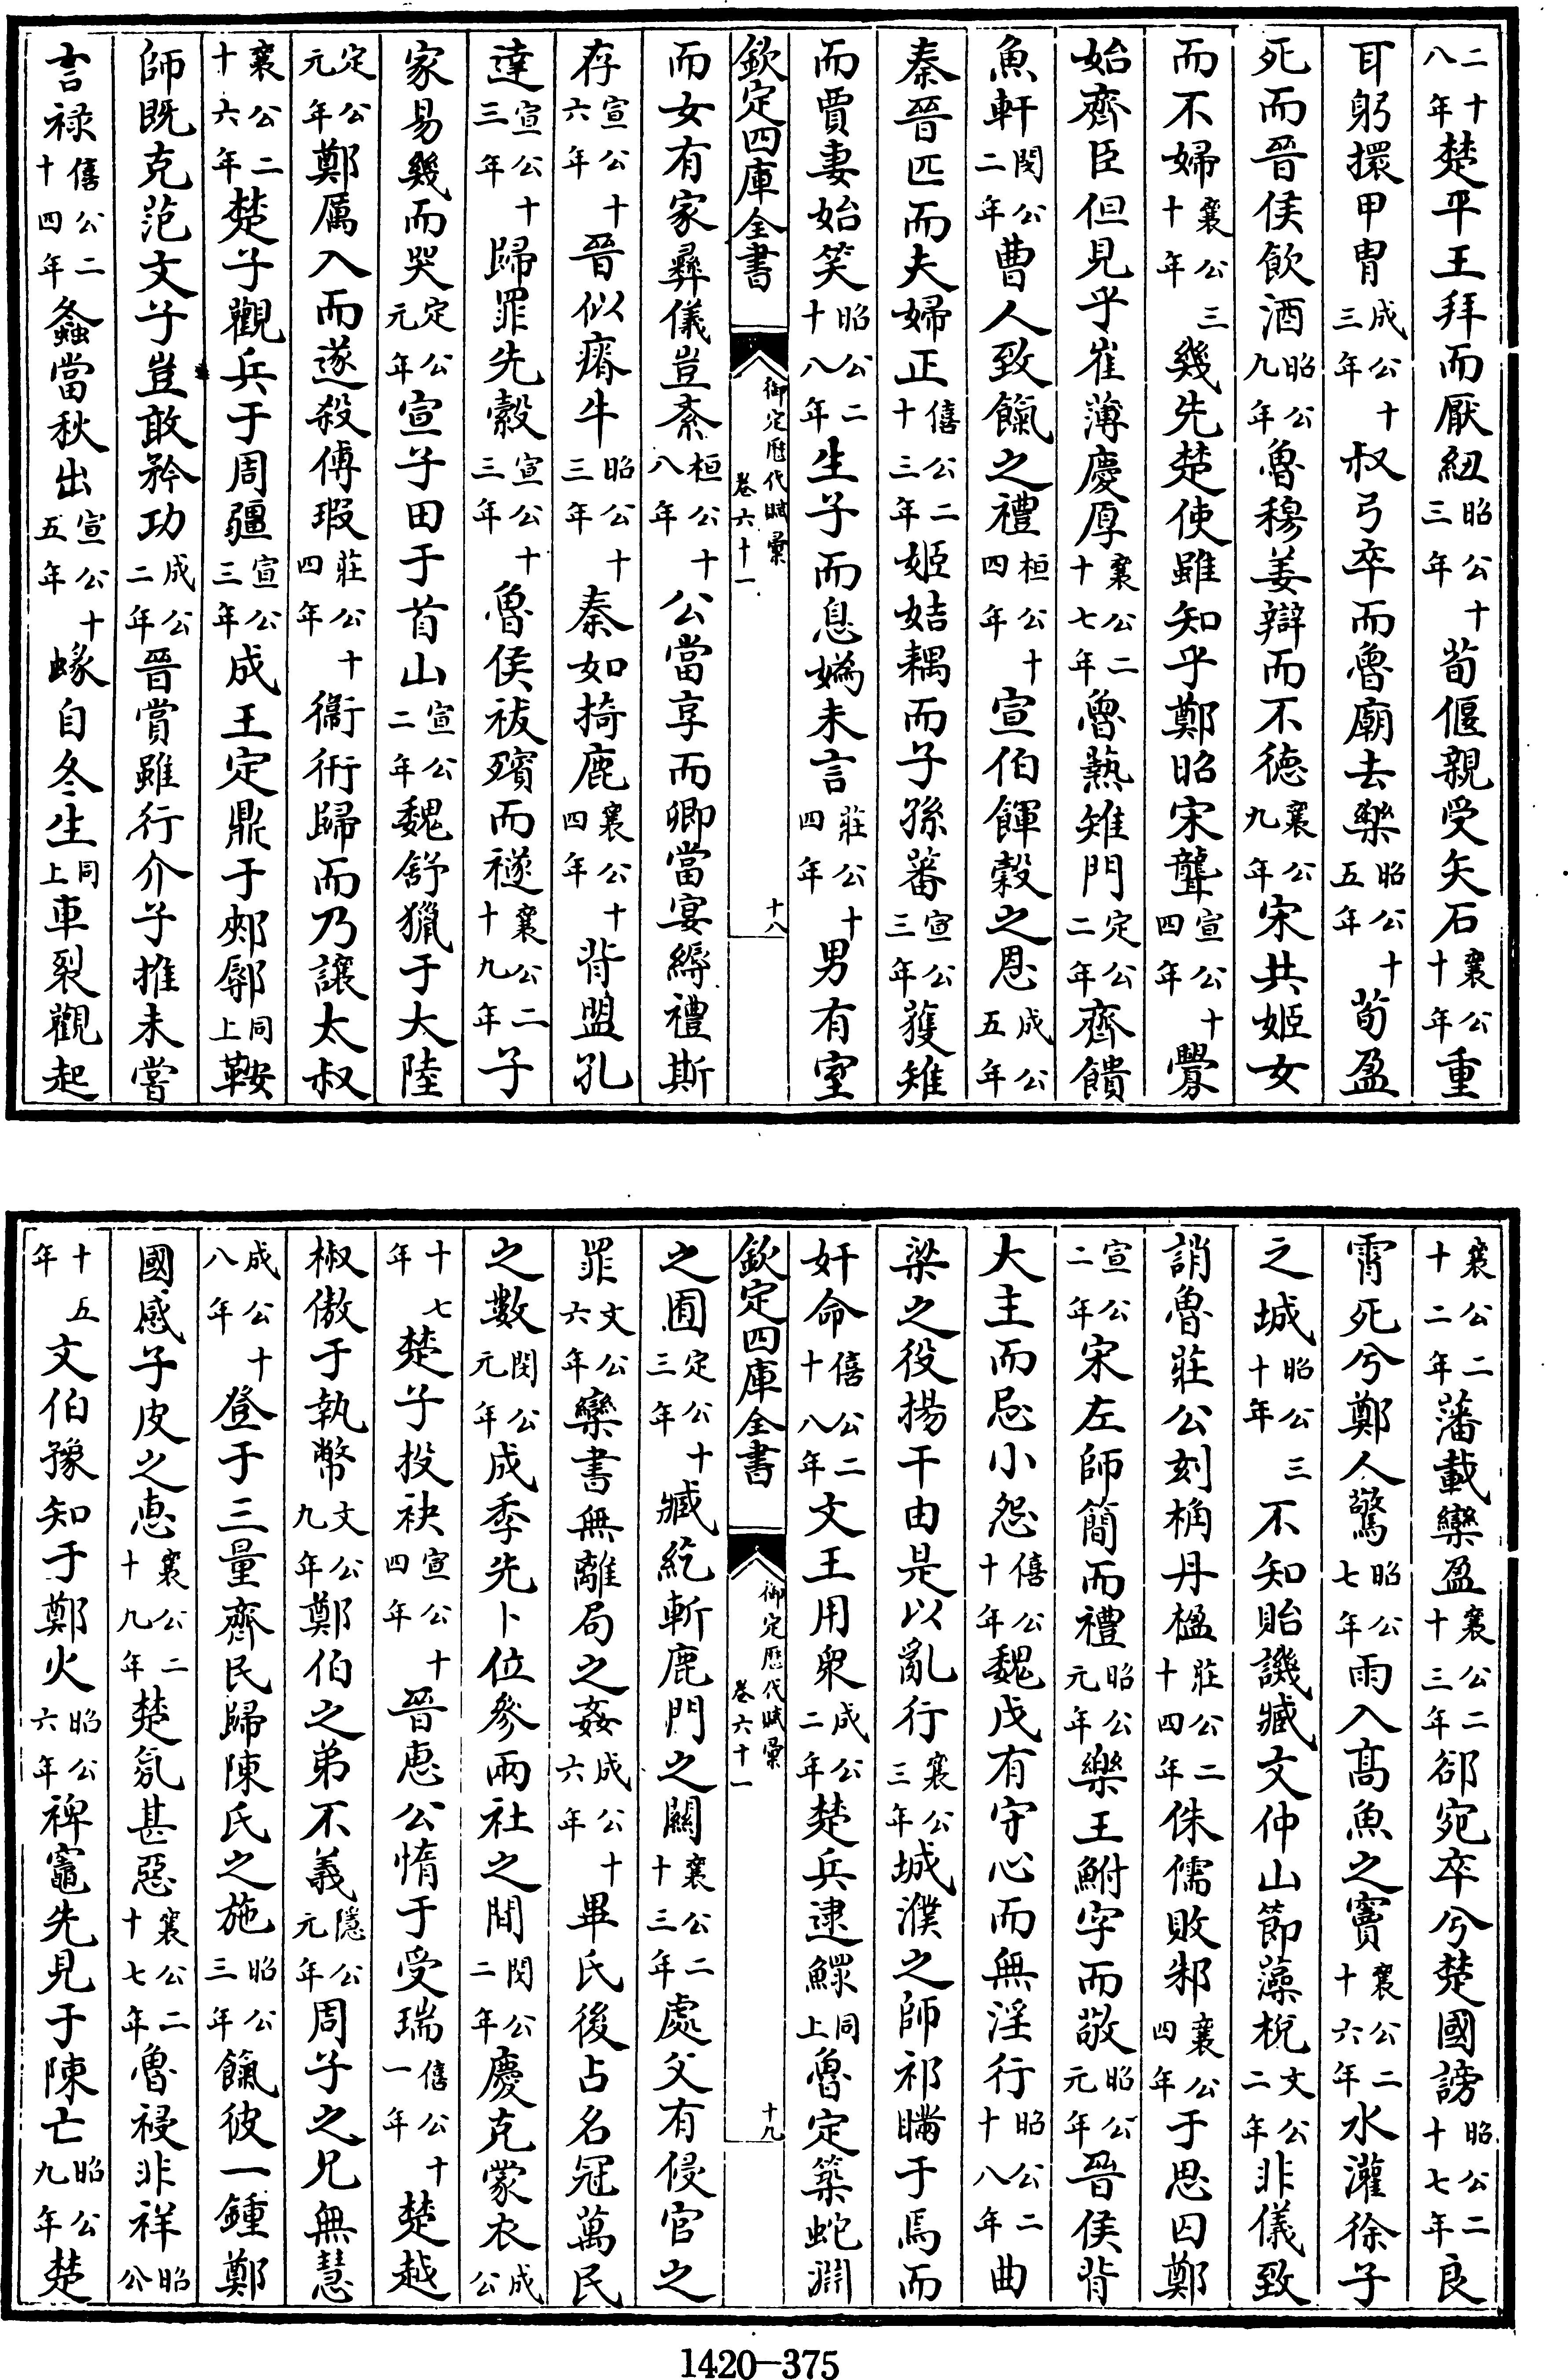 二十八年楚平王拜而厭紐昭公十三年荀偃親受矢石襄公十年重
耳躬擐甲冑成公十三年叔弓卒而魯廟去樂昭公十五年荀盈
死而晉侯飲酒昭公九年魯穆姜辯而不徳襄公九年宋共姬女
而不婦襄公三十年幾先楚使雖知乎鄭昭宋聾宣公十四年釁
始齊臣但見乎崔薄慶厚襄公二十七年魯爇雉門定公二年齊饋
魚軒閔公二年曹人致餼之禮桓公十四年宣伯餫糓之恩成公五年
秦晉匹而夫婦正僖公二十三年姬姞耦而子孫蕃宣公三年獲雉
而賈妻始笑昭公二十八年生子而息媯未言莊公十四年男有室
欽定四庫全書 御定歷代賦彙 卷六十一 十八
而女有家彞儀豈紊桓公十八年公當享而卿當宴縟禮斯
存宣公十六年晉似瘠牛昭公十三年秦如掎鹿襄公十四年背盟孔
達宣公十三年歸罪先縠宣公十三年魯侯祓殯而襚襄公二十九年子
家易幾而哭定公元年宣子田于首山宣公二年魏舒獵于大陸
定公元年鄭厲入而遂殺傅瑕莊公十四年衞衎歸而乃讓太叔
襄公二十六年楚子觀兵于周疆宣公三年成王定鼎于郟鄏同上鞍
師既克范文子豈敢矜功成公二年晉賞雖行介子推未嘗
言禄僖公二十四年螽當秋出宣公十五年蝝自冬生同上車裂觀起
襄公二十二年藩載欒盈襄公二十三年郤宛卒兮楚國謗昭公二十七年良
霄死兮鄭人驚昭公七年雨入髙魚之竇襄公二十六年水灌徐子
之城昭公三十年不知貽譏臧文仲山節藻梲文公二年非儀致
誚魯莊公刻桷丹楹莊公二十四年侏儒敗邾襄公四年于思囚鄭
宣公二年宋左師簡而禮昭公元年樂王鮒字而敬昭公元年晉侯背
大主而忌小怨僖公十年魏戊有守心而無淫行昭公二十八年曲
梁之役揚干由是以亂行襄公三年城濮之師祁瞞于焉而
奸命僖公二十八年文王用衆成公二年楚兵逮鰥同上魯定築蛇淵
欽定四庫全書 御定歷代賦彙 卷六十一 十九
之囿定公十三年臧紇斬鹿門之關襄公二十三年處父有侵官之
罪文公六年欒書無離局之姦成公十六年畢氏後占名冠萬民
之數閔公元年成季先卜位參兩社之間閔公二年慶克蒙衣成公
十七年楚子投袂宣公十四年晉惠公惰于受瑞僖公十一年楚越
椒傲于執幣文公九年鄭伯之弟不義隱公元年周子之兄無慧
成公十八年登于三量齊民歸陳氏之施昭公三年餼彼一鍾鄭
國感子皮之惠襄公二十九年楚氛甚惡襄公二十七年魯祲非祥昭公
十五年文伯豫知于鄭火昭公六年裨竈先見于陳亡昭公九年楚
1420-375